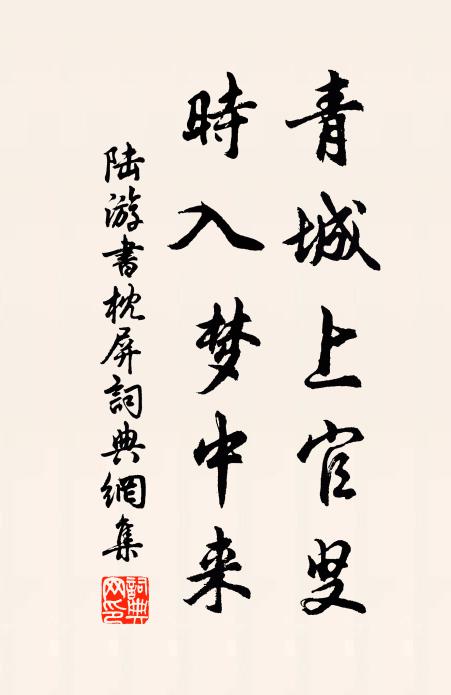 青城上官叟
時入梦中来
陆游書枕屏詞典網集
詞典网印